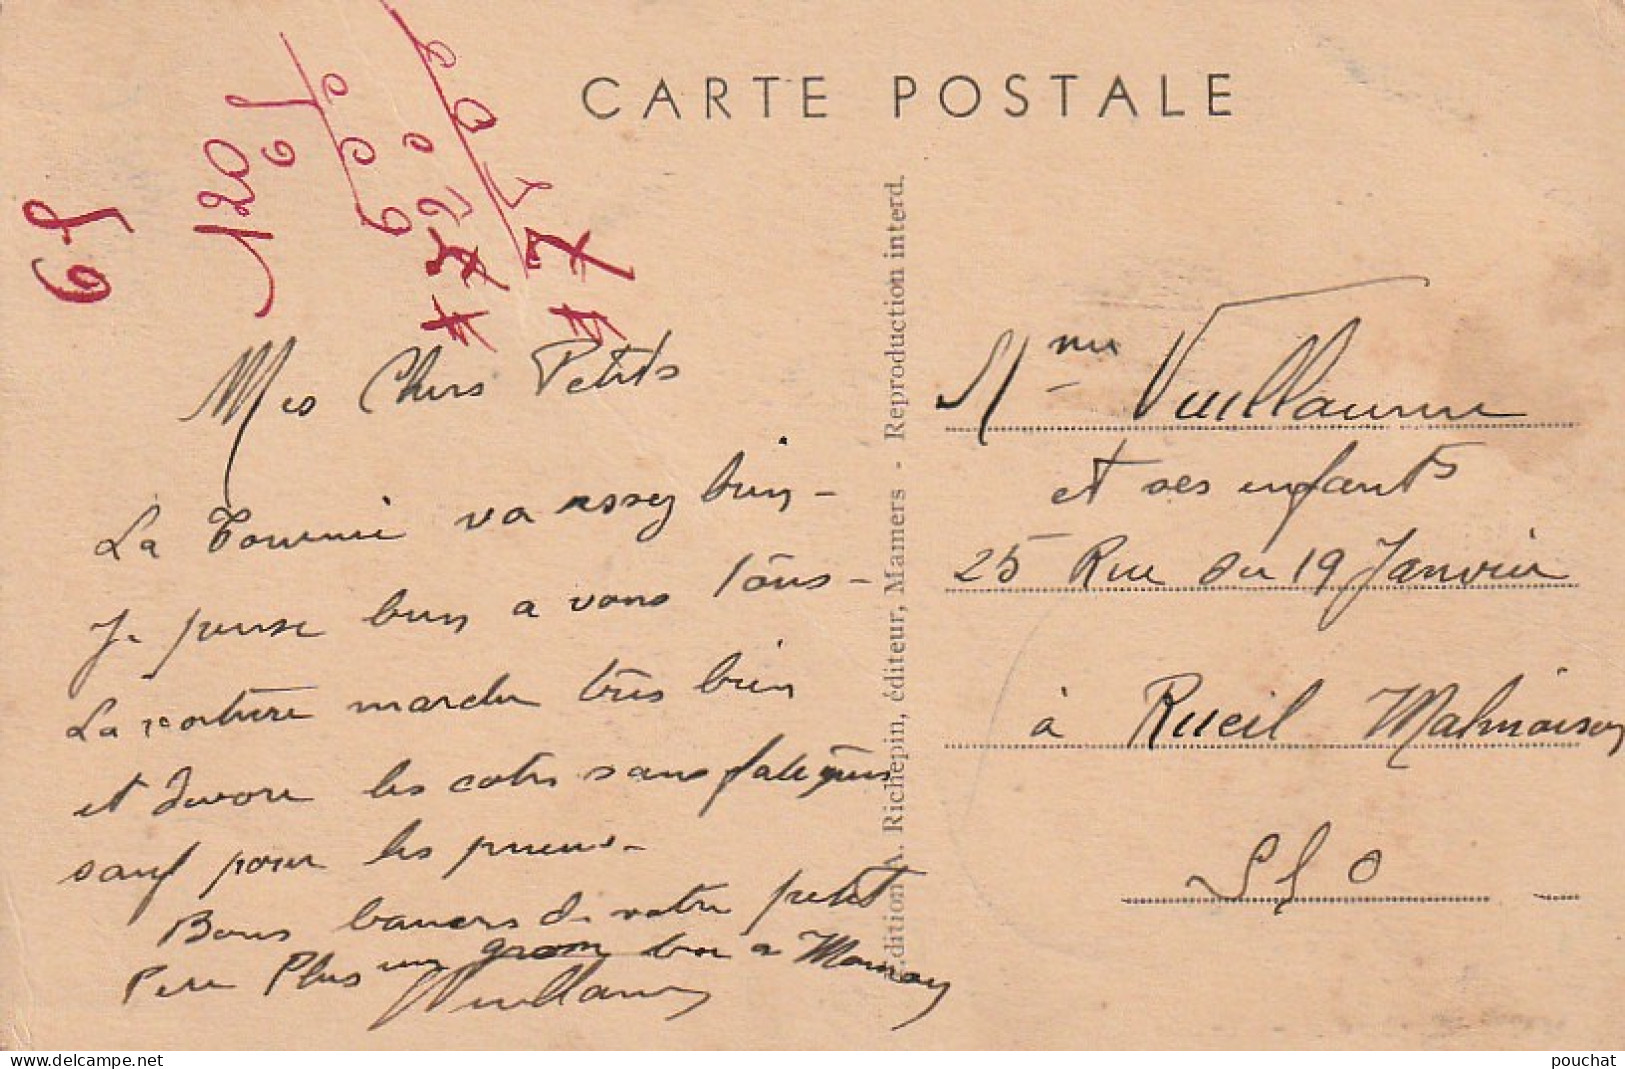 CARTE POSTALE
Mes Chers Petits
La Tournée va assez bien -
Je pense bien a vous tous -
La voiture marche très bien
et dévore les cotes sans fatigues
sauf pour les pneus -
Bons baisers de votre petit
Père Plus un gros bec a Maman
Vuillaume
Edition A. Richepin, éditeur, Mamers - Reproduction interd.
Mme Vuillaume
et ses enfants
25 Rue du 19 Janvier
à Rueil Malmaison
S & O
pouchat
www.delcampe.net